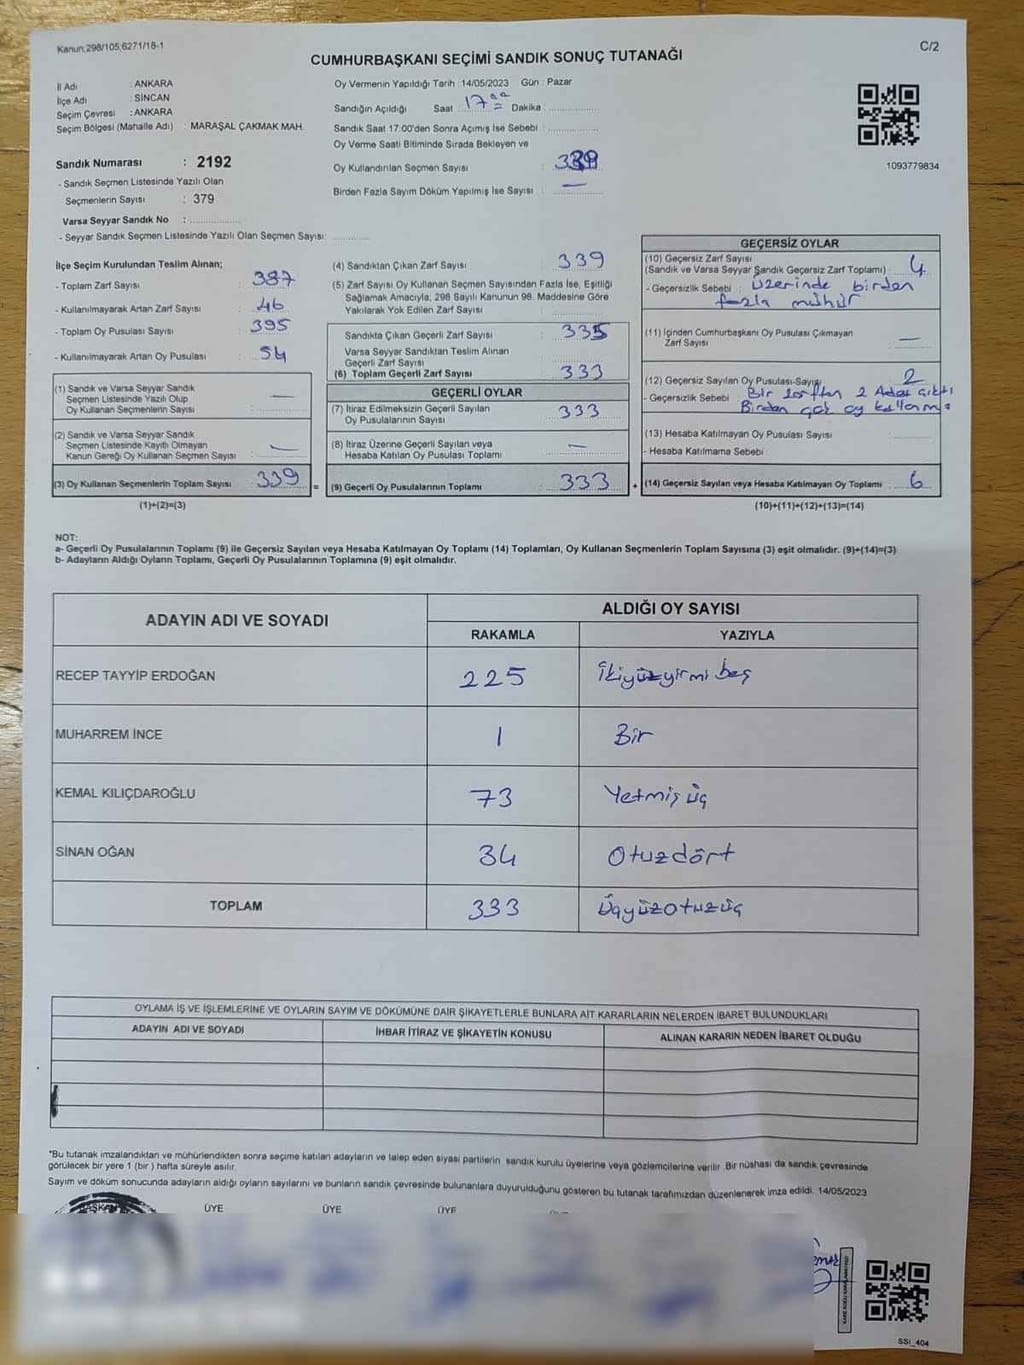 Kanun;298/105;6271/18-1
C/2
CUMHURBAŞKANI SEÇİMİ SANDIK SONUÇ TUTANAĞI
İl Adı : ANKARA
İlçe Adı : SİNCAN
Seçim Çevresi : ANKARA
Seçim Bölgesi (Mahalle Adı) : MARAŞAL ÇAKMAK MAH.
Sandık Numarası : 2192
- Sandık Seçmen Listesinde Yazılı Olan
Seçmenlerin Sayısı : 379
Varsa Seyyar Sandık No :
- Seyyar Sandık Seçmen Listesinde Yazılı Olan Seçmen Sayısı:
Oy Vermenin Yapıldığı Tarih : 14/05/2023 Gün : Pazar
Sandığın Açıldığı Saat 17 00 Dakika
Sandık Saat 17:00'den Sonra Açımış İse Sebebi :
Oy Verme Saati Bitiminde Sırada Bekleyen ve
Oy Kullandırılan Seçmen Sayısı : 339
Birden Fazla Sayım Döküm Yapılmış İse Sayısı : —
1093779834
İlçe Seçim Kurulundan Teslim Alınan;
- Toplam Zarf Sayısı : 387
- Kullanılmayarak Artan Zarf Sayısı : 46
- Toplam Oy Pusulası Sayısı : 395
- Kullanılmayarak Artan Oy Pusulası : 54
(1) Sandık ve Varsa Seyyar Sandık
Seçmen Listesinde Yazılı Olup
Oy Kullanan Seçmenlerin Sayısı : —
(2) Sandık ve Varsa Seyyar Sandık
Seçmen Listesinde Kayıtlı Olmayan
Kanun Gereği Oy Kullanan Seçmen Sayısı : —
(3) Oy Kullanan Seçmenlerin Toplam Sayısı : 339 =
(1)+(2)=(3)
(4) Sandıktan Çıkan Zarf Sayısı : 339
(5) Zarf Sayısı Oy Kullanan Seçmen Sayısından Fazla İse, Eşitliği
Sağlamak Amacıyla; 298 Sayılı Kanunun 98. Maddesine Göre
Yakılarak Yok Edilen Zarf Sayısı :
Sandıkta Çıkan Geçerli Zarf Sayısı : 335
Varsa Seyyar Sandıktan Teslim Alınan
Geçerli Zarf Sayısı :
(6) Toplam Geçerli Zarf Sayısı : 333
GEÇERLİ OYLAR
(7) İtiraz Edilmeksizin Geçerli Sayılan
Oy Pusulalarının Sayısı : 333
(8) İtiraz Üzerine Geçerli Sayılan veya
Hesaba Katılan Oy Pusulası Toplamı : —
(9) Geçerli Oy Pusulalarının Toplamı : 333 +
GEÇERSİZ OYLAR
(10) Geçersiz Zarf Sayısı
(Sandık ve Varsa Seyyar Sandık Geçersiz Zarf Toplamı) : 4
- Geçersizlik Sebebi : Üzerinde birden
fazla mühür
(11) İçinden Cumhurbaşkanı Oy Pusulası Çıkmayan
Zarf Sayısı : —
(12) Geçersiz Sayılan Oy Pusulası Sayısı : 2
- Geçersizlik Sebebi : Bir zarftan 2 Adet çıktı
Birden çok oy kullanma
(13) Hesaba Katılmayan Oy Pusulası Sayısı :
- Hesaba Katılmama Sebebi
(14) Geçersiz Sayılan veya Hesaba Katılmayan Oy Toplamı : 6
(10)+(11)+(12)+(13)=(14)
NOT:
a- Geçerli Oy Pusulalarının Toplamı (9) ile Geçersiz Sayılan veya Hesaba Katılmayan Oy Toplamı (14) Toplamları, Oy Kullanan Seçmenlerin Toplam Sayısına (3) eşit olmalıdır. (9)+(14)=(3)
b- Adayların Aldığı Oyların Toplamı, Geçerli Oy Pusulalarının Toplamına (9) eşit olmalıdır.
ADAYIN ADI VE SOYADI ALDIĞI OY SAYISI
RAKAMLA YAZIYLA
RECEP TAYYİP ERDOĞAN 225 İkiyüzyirmi beş
MUHARREM İNCE 1 Bir
KEMAL KILIÇDAROĞLU 73 Yetmiş üç
SİNAN OĞAN 34 Otuzdört
TOPLAM 333 Üçyüzotuzüç
OYLAMA İŞ VE İŞLEMLERİNE VE OYLARIN SAYIM VE DÖKÜMÜNE DAİR ŞİKAYETLERLE BUNLARA AİT KARARLARIN NELERDEN İBARET BULUNDUKLARI
ADAYIN ADI VE SOYADI İHBAR İTİRAZ VE ŞİKAYETİN KONUSU ALINAN KARARIN NEDEN İBARET OLDUĞU
*Bu tutanak imzalandıktan ve mühürlendikten sonra seçime katılan adayların ve talep eden siyasi partilerin sandık kurulu üyelerine veya gözlemcilerine verilir. Bir nüshası da sandık çevresinde
görülecek bir yere 1 (bir) hafta süreyle asılır.
Sayım ve döküm sonucunda adayların aldığı oyların sayılarını ve bunların sandık çevresinde bulunanlara duyurulduğunu gösteren bu tutanak tarafımızdan düzenlenerek imza edildi. 14/05/2023
BAŞKAN ÜYE ÜYE ÜYE
SSI_404